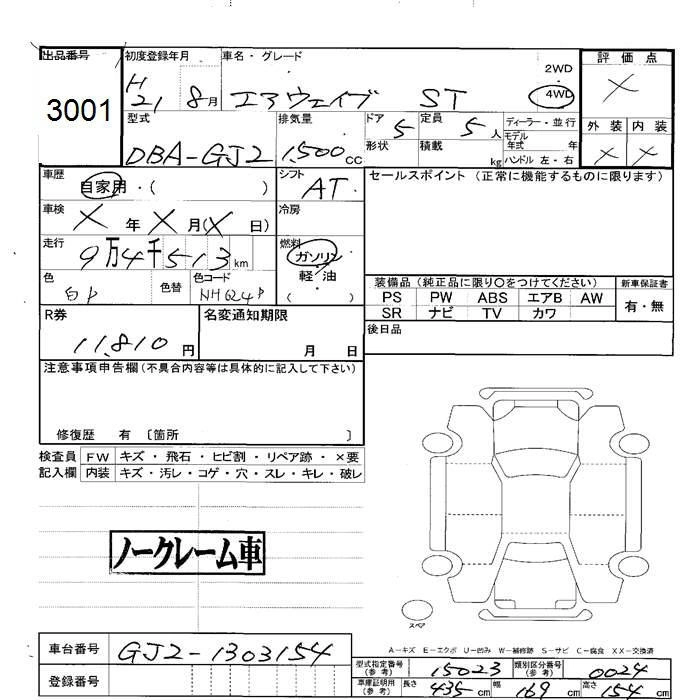 出品番号 3001
初度登録年月 H 21 8月
車名・グレード エアウェイブ ST
2WD
4WD
評価点 X
外装 内装
X X
型式 DBA-GJ2
排気量 1,500cc
ドア 5
形状
定員 5人
積載 kg
ディーラー・並行
モデル年式 年
ハンドル 左・右
車歴 自家用・( )
シフト AT
セールスポイント (正常に機能するものに限ります)
車検 X年X月(X日)
冷房
走行 9万4千513km
燃料 ガソリン
軽・油
( )
色 白P
色替
色コード NH624P
装備品 (純正品に限り○をつけてください)
新車保証書
PS PW ABS エアB AW
SR ナビ TV カワ
有・無
R券 11,810円
名変通知期限
月 日
後日品
注意事項申告欄 (不具合内容等は具体的に記入して下さい)
修復歴 有 〔箇所 〕
検査員記入欄
FW キズ・飛石・ヒビ割・リペア跡・×要
内装 キズ・汚レ・コゲ・穴・スレ・キレ・破レ
ノークレーム車
スペア
A-キズ E-エクボ U-凹み W-補修跡 S-サビ C-腐食 XX-交換済
車台番号 GJ2-1303154
登録番号
型式指定番号(参考) 15023
類別区分番号(参考) 0024
車庫証明用(参考) 長さ 435cm 幅 169cm 高さ 154cm